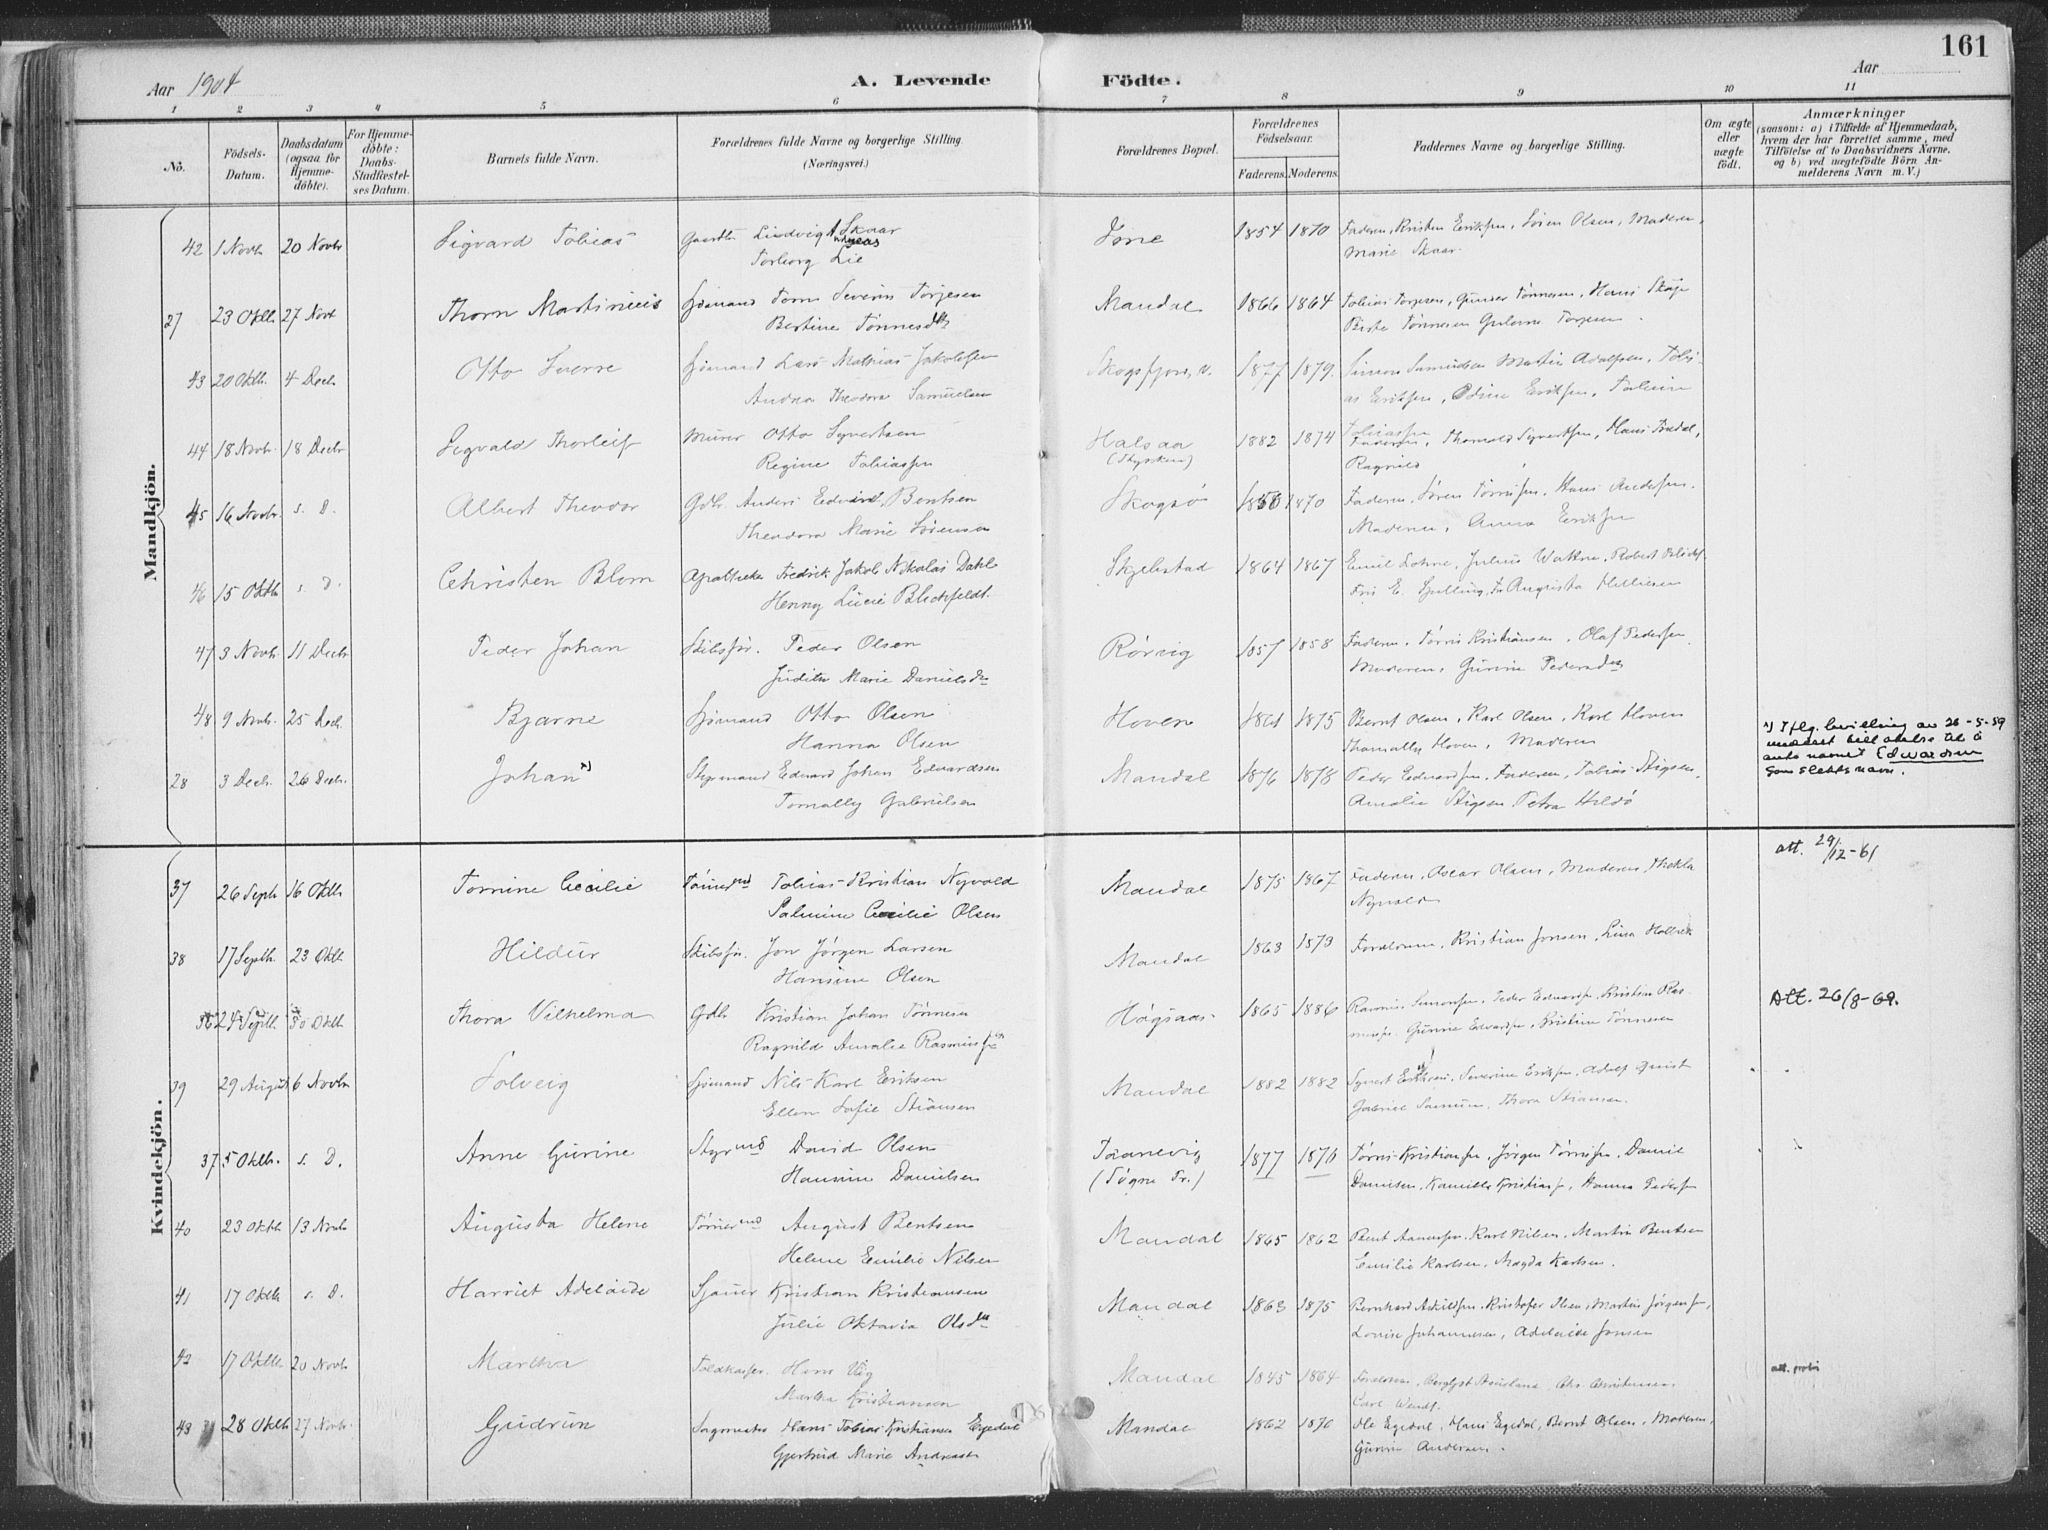 161
Aar 1904 A. Levende Födte. Aar
1 2 3 4 5 6 7 8 9 10 11
No.
Födsels-Datum.
Daabsdatum (ogsaa for Hjemme-döbte).
For Hjemme-döbte: Daabs-Stadfæstel-ses Datum.
Barnets fulde Navn.
Forældrenes fulde Navne og borgerlige Stilling. (Næringsvei.)
Forældrenes Bopæl.
Forældrenes Födselsaar.
Faderens. Moderens.
Faddernes Navne og borgerlige Stilling.
Om ægte eller uægte födt.
Anmærkninger
(saasom: a) i Tilfælde af Hjemmedaab, hvem der har forrettet samme, med Tilföielse af to Daabsvidners Navne, og b) ved uægtefödte Börn An-melderens Navn m. V.)
Mandkjön.
42 1 Novbr 20 Novbr Sigvard Tobias Ludvig Andreas Skaar 1854 1870 Faderen, Kristen Eriksen, Søren Olsen, Moderen,
Torborg Lie Marie Skaar.
27 23 Oktb. 27 Novb Thorn Martinius Sjømand Torn Severin Torjesen Mandal 1866 1864 Tobias Torjesen, Gunder Tønnesen, Hans
Bertine Tønnesdtr Birte Tønnesen Torjesen.
43 20 Oktb. 4 Decb. Otto Sverre Sjømand Lars Mathias Jakobsen Skogsfjord, v. 1877 1879. Simon Samuelsen Martin Adolfsen, Tobi-
Andrea Theodora Samuelsen as Eriksen, Odine Eriksen,
44 18 Novb. 18 Decbr Sigvald Thorleif Murer Otto Syvertsen Halsaa 1882 1874 Tobiassen
Faderen, Thorvald Syvertsen, Hans
Regine Tobiassen Ragnild
45 16 Novbr. s. D. Albert Theodor Gdbr. Anders Edvard Bentsen Skogsø 1860 1870 Faderen, Søren Tørrisen, Hans Andersen.
Theodora Marie Sørensen Moderen, Anna Eriksen
46 15 Oktb s. D. Christen Blom Apotheker Fredrik Jakob Nikolai Dahl Skjebstad 1864 1867 Emil Lohne, Julius Wattne, Robert
Henny Lucie Blichfeldt. Frk E. Augusta
47 3 Novbr. 11 Decbr Peder Johan Skibsfør. Peder Olsen Rørvig 1857 1858 Faderen, Tørris Kristiansen, Olaf Pedersen.
Judith Marie Danielsdtr Moderen, Gurine Pedersdtr
48 9 Novbr. 25 Decb. Bjarne Sjømand Otto Olsen Hoven 1861 1875 Bernt Olsen, Karl Olsen, Karl Hoven
Hanna Olsen Hoven, Moderen
*) Iflg. bevilling av 26-5-59
meddelt tillatelse til å
anta navnet Edwardsen
som slektsnavn.
28 3 Decb. 26 Decb. Johan *) Styrmand Edvard Johan Edvardsen Mandal 1876 1878 Peder Edvardsen, Faderen, Tobias Stigsen,
Tomally Gabrielsen Amalie Stigsen, Petra Hildø
Kvindekjön.
att. 29/12-61
37 26 Septb 16 Oktb Tomine Cecilie Tømermd Tobias Kristian Nyvold Mandal 1875 1867 Faderen, Oscar Olsen, Moderen, Thekla
Salmine Cecilie Olsen Nyvold
38 17 Septb. 23 Oktb Hildur Skibsfør. Jon Jørgen Larsen Mandal 1863 1873 Forældrene, Kristian Jonsen, Lina
Hansine Olsen
36 24 Septb. 30 Oktb Thora Vilhelma Gdb Kristian Johan Tønnesen Høgsaas 1865 1886 Rasmus Simonsen, Peder Edvardsen, Kristian Ras-
Ragnild Amalie Rasmusen musen. Gunnie Edvardsen, Kristine Tønnesen
Att. 26/8-69.
39 29 August 6 Novbr Solveig Sjømand Nils Karl Eriksen Mandal 1882 1882 Syvert Eriksen, Severine Eriksen, Adolf Quist
Ellen Sofie Stiansen Gabriel Thora Stiansen.
37 5 Oktb. s. D. Anne Gurine Styrmd David Olsen Taanevig 1877 1870 Tørris Kristiansen, Jørgen Tørrisen, Daniel
Hansine Danielsen (Søgne Pr.) Danielsen, Kamilla Kristians, Hanna Pedersen
40 23 Oktb 13 Novb Augusta Helene Tømermd August Bentsen Mandal 1865 1862 Bent Karl Nilsen, Martin Bentsen
Helene Emilie Nilsen Emilie Karlsen, Magda Karlsen.
41 17 Oktb s. D. Harriet Adelaide Sjauer Kristian Kristiansen Mandal 1863 1875 Bernhard Askildsen, Kristofer Olsen, Martin Jørgensen,
Julie Oktavia Olsdtr Lovise Johannesen, Adelaide Jonsen
42 17 Oktb 20 Novb Martha Toldkasser. Hans Vig Mandal 1845 1864 Forældrene, Chr. Christensen
Martha Kristiansen Carl Wendt.
43 28 Oktb 27 Novb. Gudrun Hans Tobias Kristiansen Egedal Mandal 1862 1870 Ole Egedal, Hans Egedal, Bernt Olsen, Moderen,
Gjertrud Marie Andreassen Gurine Andersen.